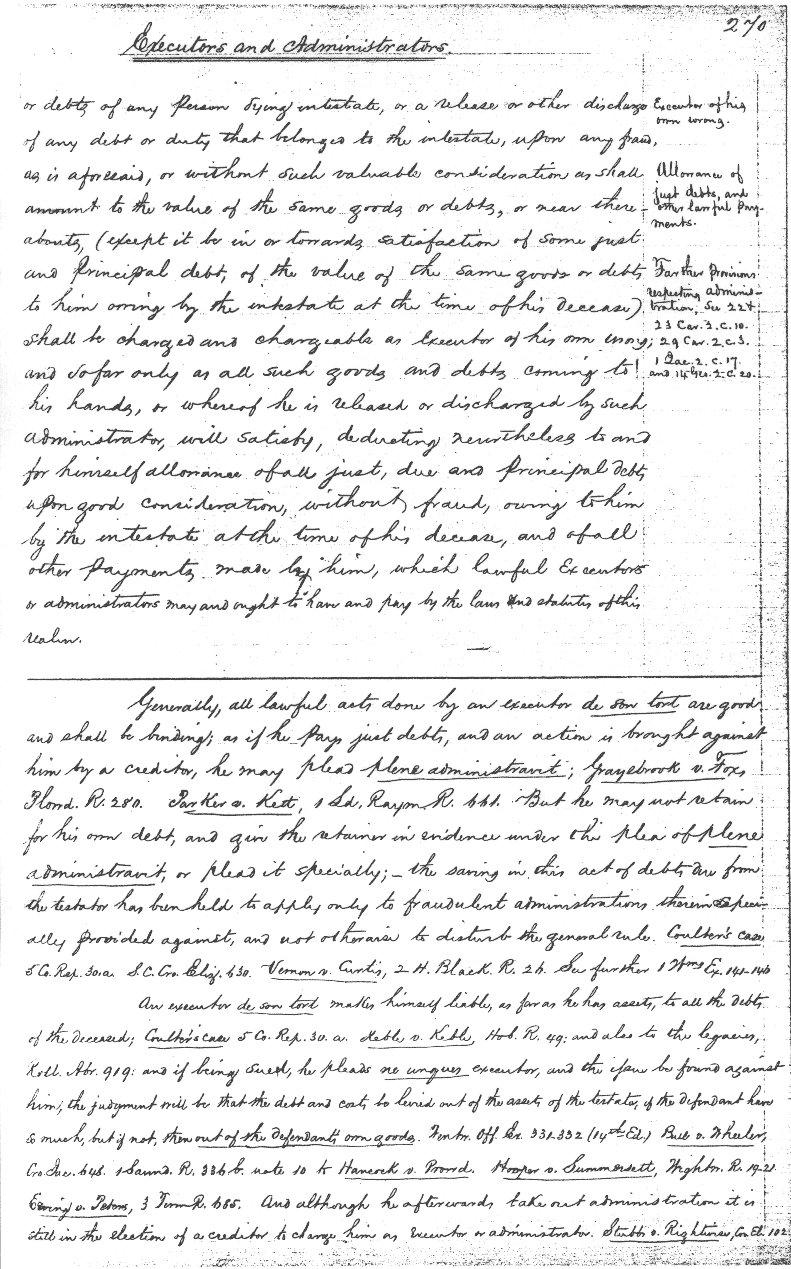 270
Executors and Administrators.
or debts of any Person dying intestate, or a release or other discharge
of any debt or duty that belonged to the intestate, upon any fraud,
as is aforesaid, or without such valuable consideration as shall
amount to the value of the same goods or debts, or near there-
abouts, (except it be in or towards satisfaction of some just
and Principal debt, of the value of the same goods or debts
to him owing by the intestate at the time of his decease)
shall be charged and chargeable as Executor of his own wrong;
and so far only as all such goods and debts coming to
his hands, or whereof he is released or discharged by such
administrator, will satisfy, deducting nevertheless to and
for himself allowance of all just, due and Principal debts
upon good consideration, without fraud, owing to him
by the intestate at the time of his decease, and of all
other Payments made by him, which lawful Executors
or administrators may and ought to have and pay by the laws and statutes of this
realm.
Executor of his
own wrong.
Allowance of
just debts, and
other lawful Pay-
ments.
Farther Provisions
respecting adminis-
tration, See 22 &
23 Car. 2. c. 10.
29 Car. 2. c. 3.
1 Jac. 2. c. 17.
and 14 Geo. 2. c. 20.
Generally, all lawful acts done by an executor de son tort are good
and shall be binding; as if he Pays just debts, and an action is brought against
him by a creditor, he may plead plene administravit; Graysbrook v. Fox,
Plowd. R. 280. Parker v. Kett, 1 Ld. Raym R. 661. But he may not retain
for his own debt, and give the retainer in evidence under the plea of plene
administravit, or plead it specially; – the saving in this act of debts due from
the testator has been held to apply only to fraudulent administrations therein speci-
ally provided against, and not otherwise to disturb the general rule. Coulter's case
5 Co. Rep. 30. a. S.C. Cro. Eliz. 630. Vernon v. Curtis, 2 H. Black. R. 26. See further 1 Wms Ex. 141-146
An executor de son tort makes himself liable, as far as he has assets, to all the debts
of the deceased; Coulter's case 5 Co. Rep. 30. a. Keble v. Keble, Hob. R. 49: and also to the legacies,
Roll. Abr. 919: and if being sued, he pleads ne unques executor, and the issue be found against
him, the judgment will be that the debt and costs be levied out of the assets of the testator, if the defendant have
so much, but if not, then out of the defendant's own goods. Wentw. Off. Ex. 331.332 (14th Ed.) Bull v. Wheeler,
Cro. Jac. 648. 1 Saund. R. 336 b. note 10 to Hancock v. Prowd. Hooper v. Summersett, Wightw. R. 19-21.
Ewing v. Peters, 3 Term R. 685. And although he afterwards take out administration it is
still in the election of a creditor to charge him as executor or administrator. Stubbs v. Rightwise, Cro. El. 102.